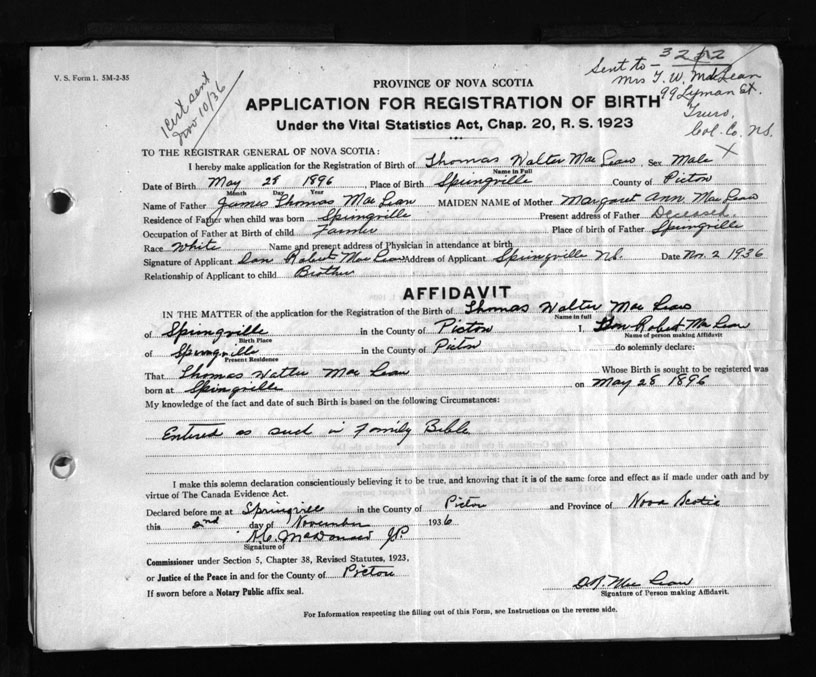 V. S. Form 1. 5M-2-35
Cert sent
Nov 10/36
Sent to 3212
Mrs T. W. MacLean
99 Lyman St.
Truro,
Col. Co. N.S.
PROVINCE OF NOVA SCOTIA
APPLICATION FOR REGISTRATION OF BIRTH
Under the Vital Statistics Act, Chap. 20, R. S. 1923
TO THE REGISTRAR GENERAL OF NOVA SCOTIA:
I hereby make application for the Registration of Birth of Thomas Walter Mac Lean, Sex Male X
Name in Full
Date of Birth May 28 1896, Place of Birth Springville County of Pictou
Month Day Year
Name of Father James Thomas Mac Lean MAIDEN NAME of Mother Margaret Ann Mac Lean
Residence of Father when child was born Springville Present address of Father Deceased.
Occupation of Father at Birth of child Farmer Place of birth of Father Springville
Race White Name and present address of Physician in attendance at birth
Signature of Applicant Dan Robert Mac Lean Address of Applicant Springville N.S. Date Nov. 2 1936
Relationship of Applicant to child Brother
AFFIDAVIT
IN THE MATTER of the application for the Registration of the Birth of Thomas Walter Mac Lean
Name in full
of Springville in the County of Pictou I, Dan Robert Mac Lean
Birth Place Name of person making Affidavit
of Springville in the County of Pictou do solemnly declare:
Present Residence
That Thomas Walter Mac Lean Whose Birth is sought to be registered was
born at Springville on May 28 1896
My knowledge of the fact and date of such Birth is based on the following Circumstances:
Entered as such in Family Bible
I make this solemn declaration conscientiously believing it to be true, and knowing that it is of the same force and effect as if made under oath and by
virtue of The Canada Evidence Act.
Declared before me at Springville in the County of Pictou and Province of Nova Scotia
this 2nd day of November 1936
MacDonald J.P.
Signature of
Commissioner under Section 5, Chapter 38, Revised Statutes, 1923.
or Justice of the Peace in and for the County of Pictou
If sworn before a Notary Public affix seal.
D.R. Mac Lean
Signature of Person making Affidavit.
For Information respecting the filling out of this Form, see Instructions on the reverse side.